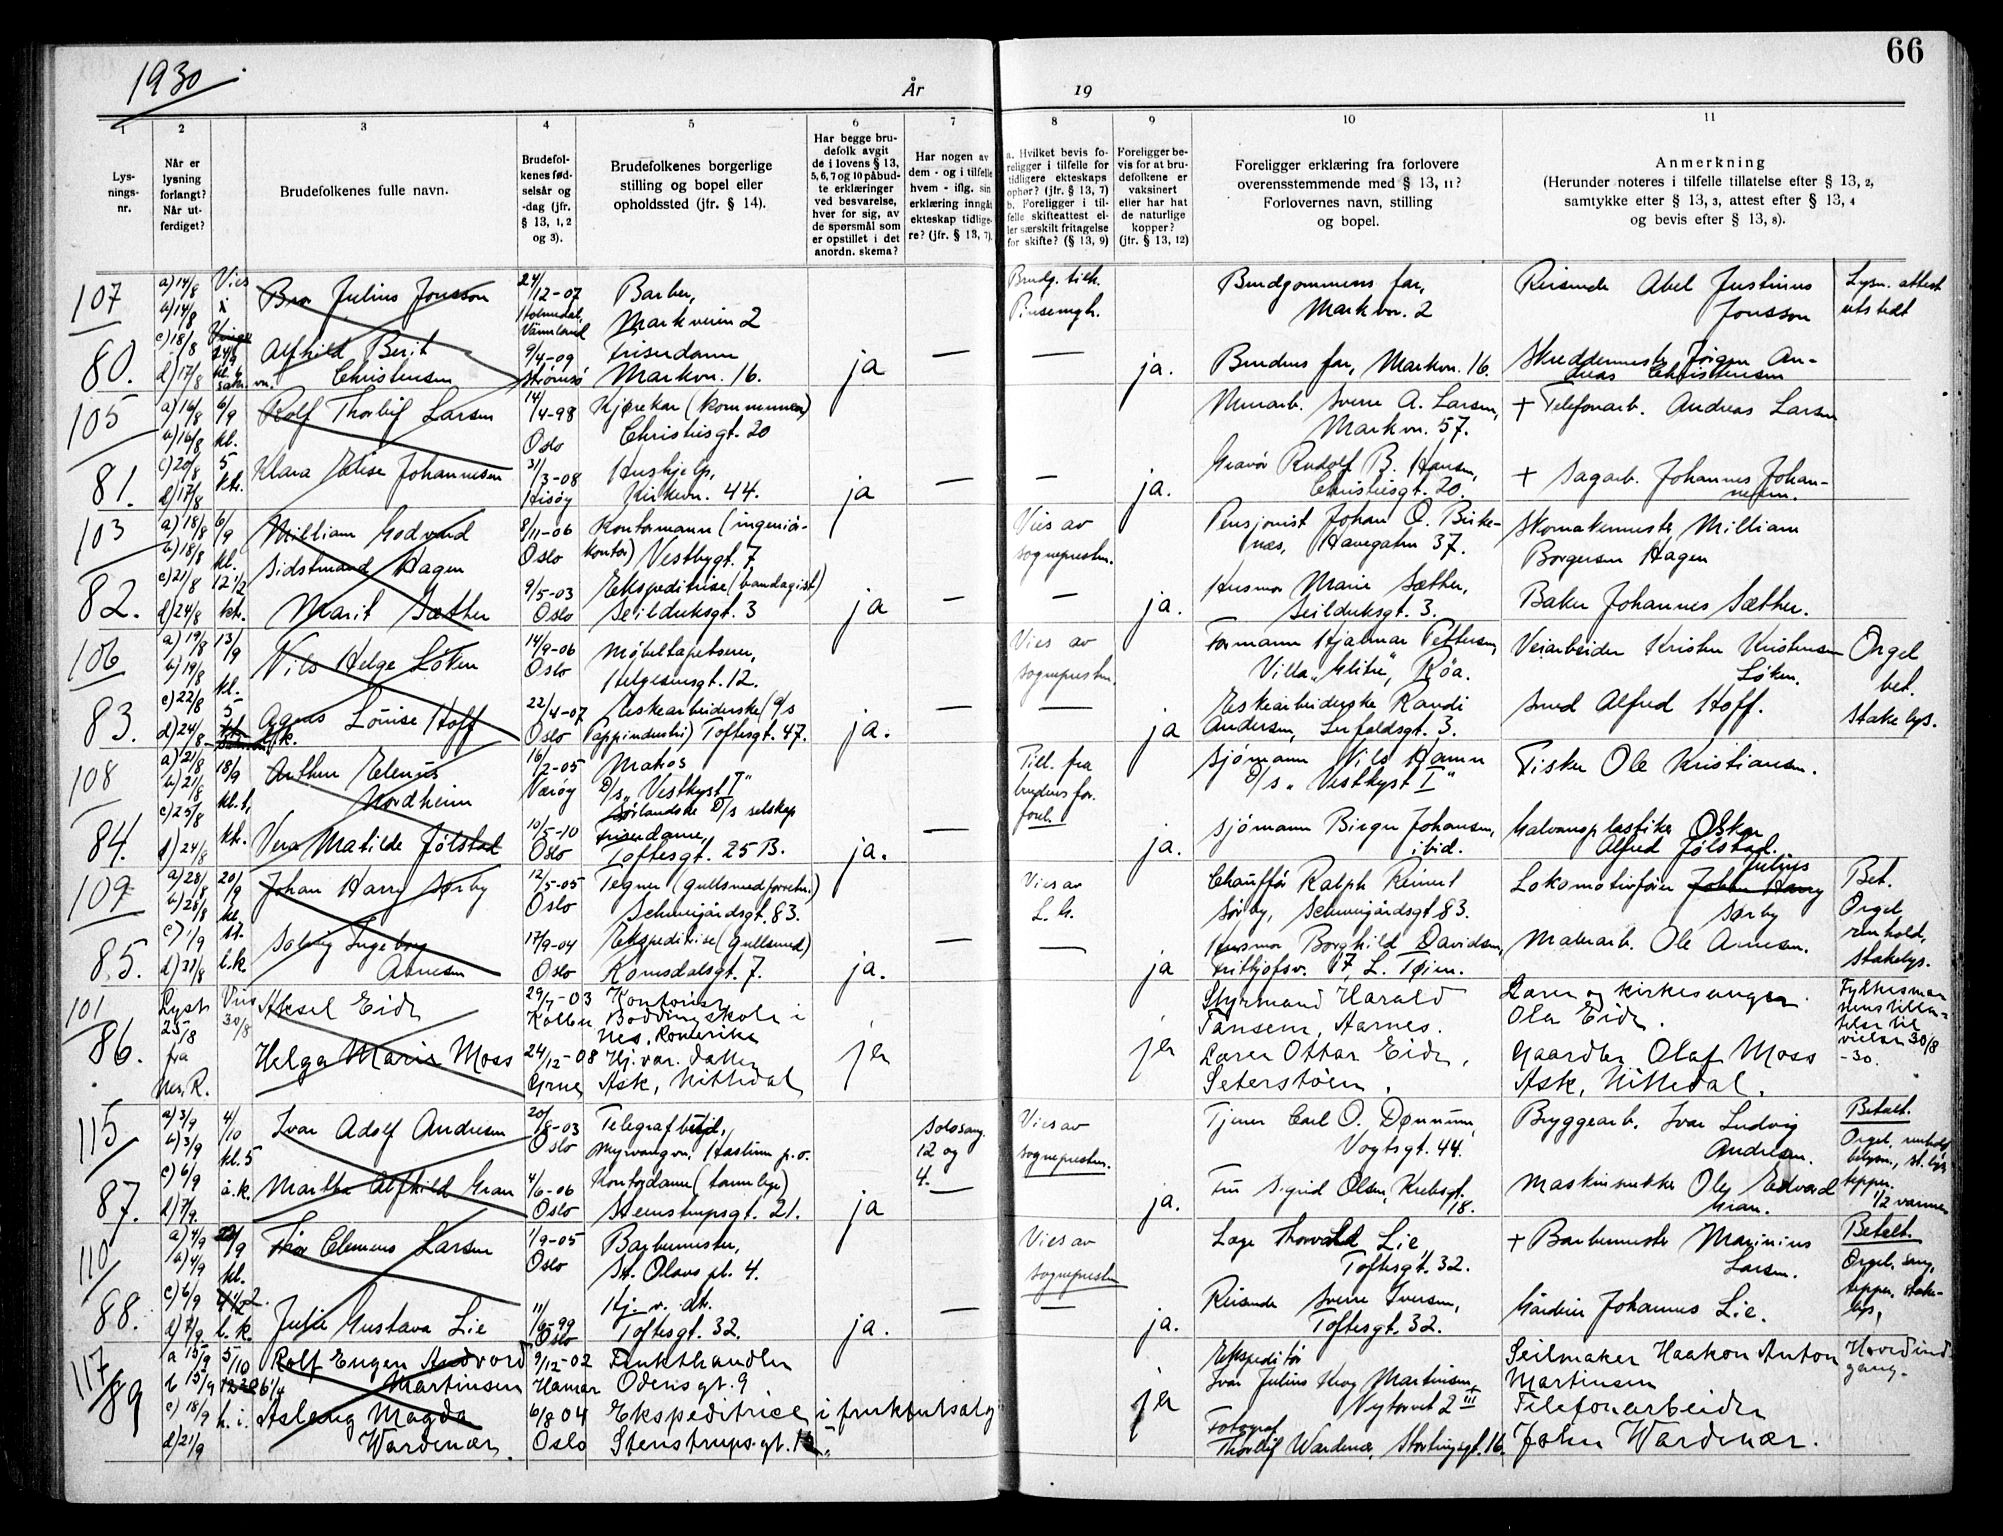 1930
År
19
66
1
2
3
4
5
6
7
8
9
10
11
Lys-
nings-
nr.
Når er
lysning
forlangt?
Når ut-
ferdiget?
Brudefolkenes fulle navn.
Brudefol-
kenes fød-
selsår og
-dag (jfr.
§ 13, 1, 2
og 3).
Brudefolkenes borgerlige
stilling og bopel eller
opholdssted (jfr. § 14).
Har begge bru-
defolk avgit
de i lovens § 13,
5, 6, 7 og 10 påbud-
te erklæringer
ved besvarelse,
hver for sig, av
de spørsmål som
er opstillet i det
anordn. skema?
Har nogen av
dem - og i tilfelle
hvem - iflg. sin
erklæring inngåt
ekteskap tidlige-
re? (jfr. § 13, 7).
a. Hvilket bevis fo-
religger i tilfelle for
tidligere ekteskaps
ophør? (jfr. § 13, 7)
b. Foreligger i til-
felle skifteattest el-
ler særskilt fritagelse
for skifte? (§ 13, 9)
Foreligger be-
vis for at bru-
defolkene er
vaksinert
eller har hat
de naturlige
kopper?
(jfr. § 13, 12)
Foreligger erklæring fra forlovere
overensstemmende med § 13, 11?
Forlovernes navn, stilling
og bopel.
Anmerkning
(Herunder noteres i tilfelle tillatelse efter § 13, 2,
samtykke efter § 13, 3, attest efter § 13, 4
og bevis efter § 13, 8).
107
80.
a) 14/8
b) 14/8
c) 18/8
d) 17/8
Julius Jonsson
Alfhild Berit
Christensen
24/12-07
Vännland
9/4-09
Strømsø
Barber,
Markveien 2
Friserdame
Markvn. 16.
ja
—
Brudg. tilh.
Pinsemgh.
—
ja.
Brudgommens far,
Markvn. 2
Brudens far, Markvn. 16.
Reisende Abel Justinus
Jonsson
Skreddermester Jørgen An-
dreas Christensen
Lysn. attest
utstedt
105
81.
a) 16/8
b) 16/8
c) 20/8
d) 17/8
6/9
kl.
5
Rolf Thorleif Larsen
Klara Elise Johannesen
14/4-98
Oslo
31/3-08
Hisøy
Kjørekar (kommunen)
Christiesgt. 20
Hushjelp,
Kirkevn. 44.
ja
—
—
ja.
Murarb. Sverre A. Larsen,
Markvn. 57.
Gravør Rudolf B. Hansen,
Christiesgt. 20.
+ Telefonarb. Andreas Larsen
+ Sagarb. Johannes Johan-
nesen.
103
82.
a) 18/8
b) 18/8
c) 21/8
d) 24/8
6/9
kl.
12 1/2
William Godvard
Sidstmand Hagen
Marit Sæther
8/11-06
Oslo
9/5-03
Oslo
Kontormann (ingeniør-
kontor) Vestbygt. 7
Ekspeditrise (bandagist)
Seilduksgt. 3
ja
—
Vies av
sognepresten.
—
ja.
Pensjonist Johan O. Birke-
næs, Havegaten 37.
Husmor Marie Sæther,
Seilduksgt. 3.
Skomakermester William
Borgersen Hagen
Baker Johannes Sæther.
106
83.
a) 19/8
b) 19/8
c) 22/8
d) 24/8
13/9
kl.
5
Nils Helge Løken
Agnes Louise Hoff
14/9-06
Oslo
22/4-07
Oslo
Møbeltapetserer,
Helgesensgt. 12.
Eskearbeiderske (9/s
Pappindustri) Toftesgt. 47.
ja.
—
Vies av
sognepresten.
—
ja
Formann Hjalmar Pettersen,
Villa „Glitre", Røa.
Eskearbeiderske Randi
Andersen, Seilduksgt. 3.
Veiarbeider Kristen Kristensen
Løken.
Smed Alfred Hoff.
Orgel
bet.
Stakelys.
108
84.
a) 21/8
b) 21/8
c) 25/8
d) 24/8
18/9
Arthur Elenius
Nordheim
Vera Matilde Jølstad
16/2-05
Værøy
10/5-10
Oslo
Matros
D/s „Vestkyst I"
Sørlandske D/s selskap
Friserdame,
Toftesgt. 25 B.
ja.
—
Till. fra
brudens for.
forel.
ja.
Sjømann Nils Hamn
D/s „Vestkyst I"
Sjømann Birger Johansen,
ibid.
Fisker Ole Kristiansen.
Galvanoplastiker Oskar
Alfred Jølstad.
109
85.
a) 28/8
b) 28/8
c) 1/9
d) 31/8
20/9
kl.
Johan Harry Sørby
Solveig Ingeborg
Arnesen
12/5-05
Oslo
17/9-04
Oslo
Tegner (gullsmedforretn.)
Schweigårdsgt. 83.
Ekspeditrise (gullsmed)
Romsdalsgt. 7.
ja.
—
Vies av
L. h.
—
ja
Chauffør Ralph Reinert
Sørby, Schweigårdsgt 83.
Husmor Borghild Davidsen,
Fritjofsv. 17, L. Tøien.
Lokomotivfører Johan Harry Julius
Sørby
Malerarb. Ole Arnesen.
Bet.
Orgel
renhold,
stakelys.
101
86.
Lyst
25/8
fra
Nes, R.
Vies
30/8
Aksel Eide
Helga Marie Moss
29/7-03
24/12-08
Grue
Kontorist
Boddingskole i
Nes, Romerike
Hj. vær. datter
Ask, Nittedal
ja
ja
Styrmand Harald
Tansem, Aarnes.
Lærer Ottar Eide,
Seterstøen.
Lærer og kirkesanger.
Ola Eide.
Gaardbr. Olaf Moss
Ask, Nittedal.
Fylkesman-
nens tilla-
telse til
vielse 30/8
-30.
115
87.
a) 3/9
b) 3/9
c) 6/9
d) 7/9
4/10
kl. 5
å. k.
Ivar Adolf Andresen
Martha Alfhild Gran
20/8-03
Oslo
4/6-06
Oslo
Telegrafbud,
Myrvangvn. Haslum p.o.
Kontordame (
Stenstrupsgt. 21.
ja
Solosang
12 og
4.
—
Vies av
sognepresten.
ja.
Tjener Carl O. Dønnum,
Vogtsgt. 44.
Fru Sigrid Olsen, Krebsgt.
18.
Bryggearb. Ivar Ludvig
Andresen.
Maskinsnekker Ole Edvard
Gran.
Betalt.
Orgel, renhold,
belysn., st. lys
tepper.
1/2 varme
110
88.
a) 4/9
b) 4/9
c) 6/9
d) 7/9
kl.
b. k.
Thor Clemens Larsen
Julie Gustava Lie
1/9-05
Oslo
11/6-99
Oslo
Barbermester,
St. Olavs pl. 4.
Hj. v. dtr.
Toftesgt. 32.
ja.
—
Vies av
sognepresten
—
ja.
Læge Thorvald Lie,
Toftesgt. 32.
Reisende Sverre Iversen,
Toftesgt. 32.
+ Barbermester Marinius
Larsen.
Gårdeier Johannes Lie.
Betalt.
Orgel, sang,
tepper, stake-
lys,
117
89
a 15/9
b 15/9
c) 18/9
d) 21/9
5/10
Rolf Eugen Andvord
Martinsen
Aslaug Magda
Wardenær.
9/12-02
Hamar
6/8 04
Oslo
Frukthandler
Odensgt. 9
Ekspeditrice i fruktutsalg
Stenstrupsgt.
ja
Ekspeditør
Ivar Julius Krog Martinsen,
Nytorvet 2 III
Fotograf
Thorleif Wardenær, Stortingsgt. 16.
Seilmaker Haakon Anton
Martinsen
Telefonarbeider
John Wardenær.
Hovedind-
gang.